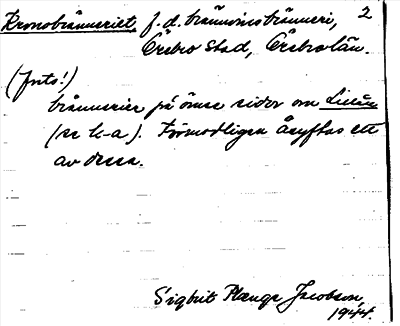 Kronobränneriet, f.d. brännvinsbränneri, 2
Örebro stad, Örebro län.
(forts!)
brännerier på ömse sidor om
(se k-a). Förmodligen åsyftas ett
av dessa.
Sigbrit Plænge Jacobson,
1944.